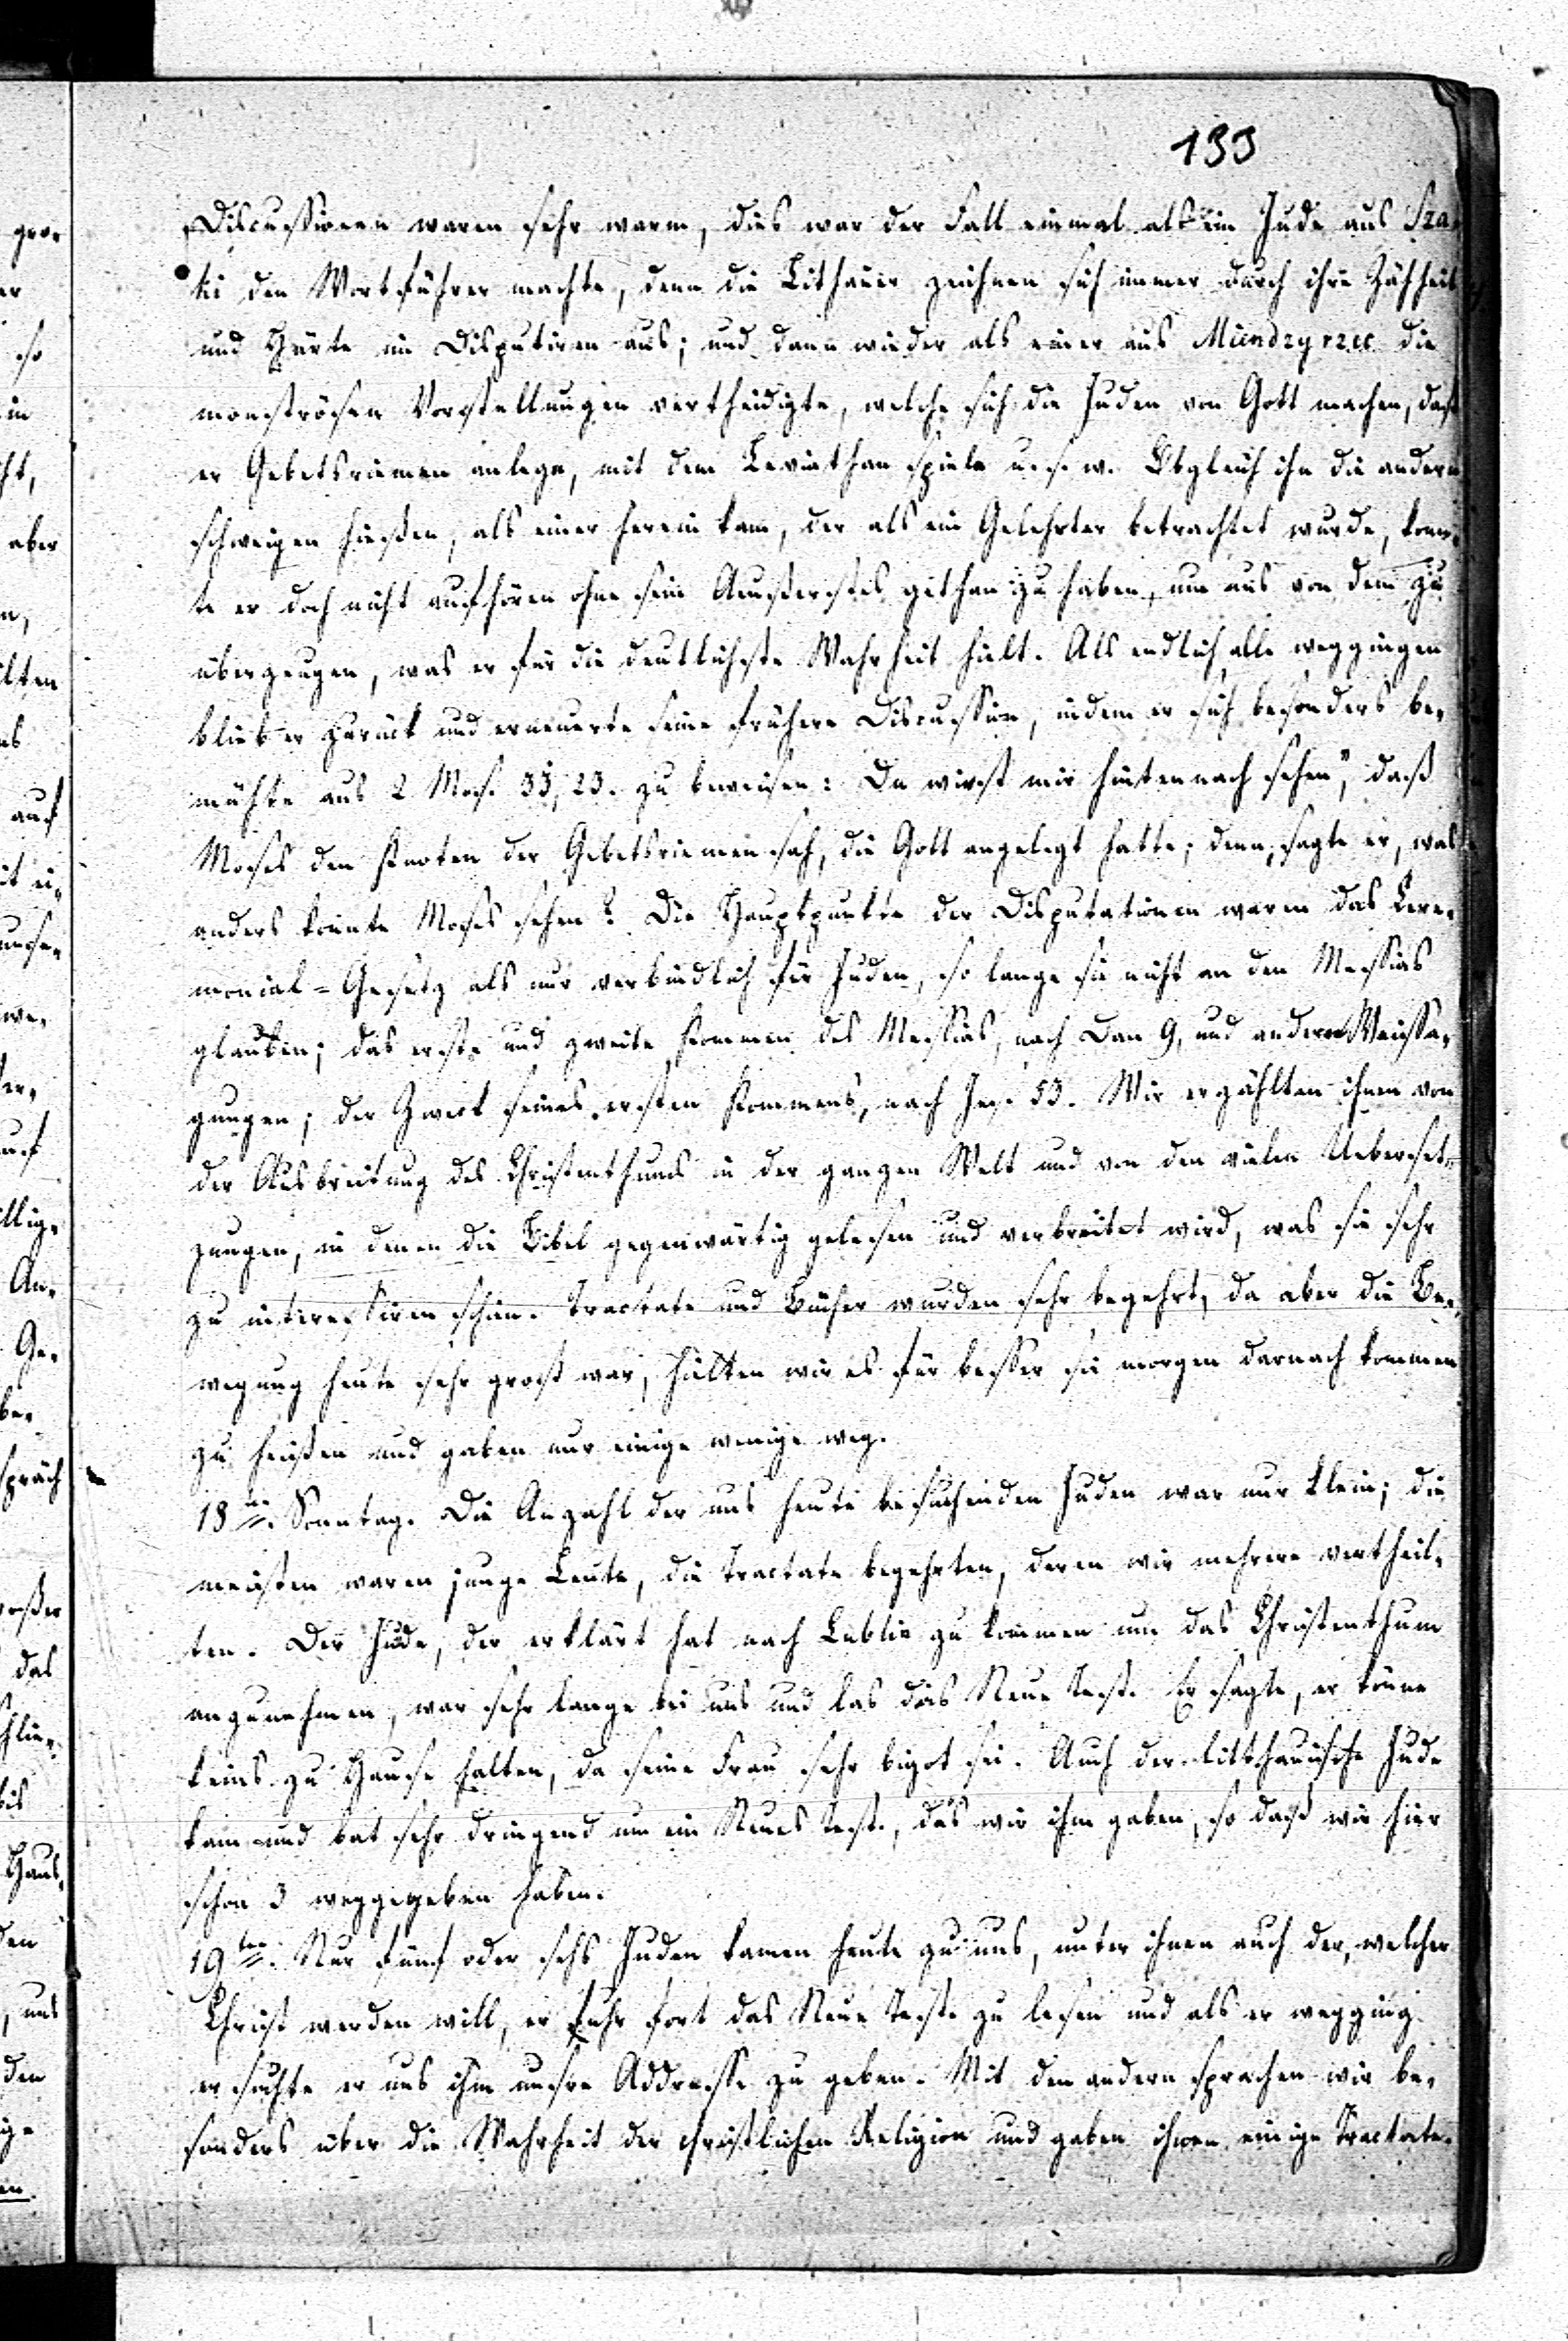 133
Discussionen waren sehr warm, dies war der Fall einmal als ein Jude aus Sza-
ki den Wortführer machte, denn die Lithauer zeichnen sich immer durch ihre Zähheit
und Härte im Disputiren aus; und dann wieder als einer aus Miendzyrzec die
monströsen Vorstellungen vertheidigte, welche sich die Juden von Gott machen, daß
er Gebetsriemen anlege, mit dem Leviathan spiele u. s. w. Obgleich ihn die andern
schweigen hießen, als einer herein kam, der als ein Gelehrter betrachtet wurde, konn-
te er doch nicht aufhören ohne sein Aeußerstes gethan zu haben, um uns von dem zu
überzeugen, was er für die deutlichste Wahrheit hielt. Als endlich alle weggingen
blieb er zurück und erneuerte seine frühere Discussion, indem er sich besonders be-
mühte aus 2 Mos. 33, 23. zu beweisen: Du wirst mir hinten nach sehen", daß
Moses den Knoten der Gebetsriemen sah, die Gott angelegt hatte; denn, sagte er, was
anders konnte Moses sehen? Die Hauptpunkte der Disputationen waren das Cere-
monial-Gesetz als nur verbindlich für Juden, so lange sie nicht an den Messias
glauben; das erste und zweite Kommen des Messias, nach Dan 9, und andern Weissa-
gungen; der Zweck seines ersten Kommens, nach Jes. 53. Wir erzählten ihnen von
der Ausbreitung des Christenthums in der ganzen Welt und von den vielen Ueberset-
zungen, in denen die Bibel gegenwärtig gelesen und verbreitet wird, was sie sehr
zu interessiren schien. Tractate und Bücher wurden sehr begehrt, da aber die Be-
wegung heute sehr groß war, hielten wir es für besser sie morgen darnach kommen
zu heißen und gaben nur einige wenige weg.
18ten. Sonntag. Die Anzahl der uns heute besuchenden Juden war nur klein; die
meisten waren junge Leute, die Tractate begehrten, deren wir mehrere vertheil-
ten. Der Jude, der erklärt hat nach Lublin zu kommen um das Christenthum
anzunehmen, war sehr lange bei uns und las das Neue Test. Er sagte, er könne
keins zu Hause halten, da seine Frau sehr bigot sei. Auch der litthauische Jude
kam und bat sehr dringend um ein Neues Test., das wir ihm gaben, so daß wir hier
schon 3 weggegeben haben.
19ten. Nur fünf oder sechs Juden kamen heute zu uns, unter ihnen auch der, welcher
Christ werden will, er fuhr fort das Neue Test. zu lesen und als er wegging
ersuchte er uns ihm unsre Addresse zu geben. Mit den andern sprachen wir be-
sonders über die Wahrheit der christlichen Religion und gaben ihnen einige Tractate.